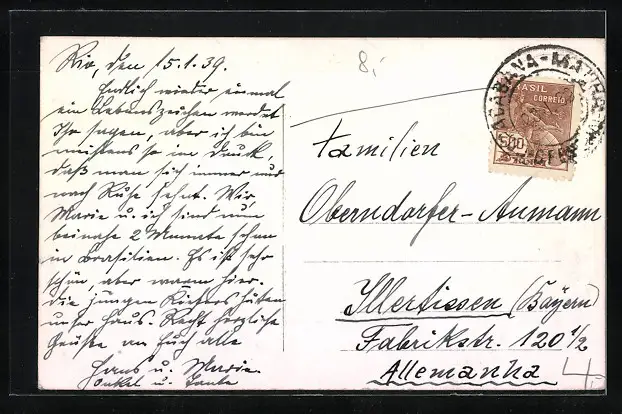 Rio, den 15.1.39.
Endlich wieder einmal
ein Lebenszeichen werdet
Ihr sagen, aber ich bin
meistens so im Druck,
daß man sich immer nur
nach Ruhe sehnt. Wir,
Marie u. ich sind nun
beinahe 2 Monate schon
in Brasilien. Es ist sehr
schön, aber warm hier.
Die jungen hüten
unser Haus. Recht herzliche
Grüße an Euch alle
Hans u. Marie.
Onkel u. Tante
8,-
BRASIL
CORREIO
500
Familien
Oberndorfer-Aumann
Illertissen (Bayern)
Fabrikstr. 120 1/2
Allemanha
4,-